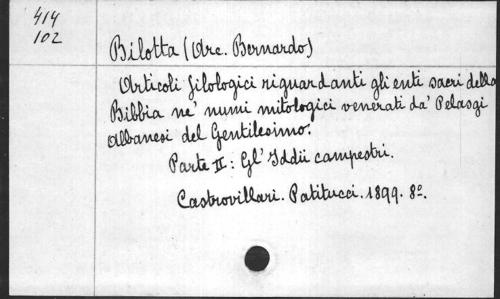 414
102
Bilotta (Arc. Bernardo)
Articoli filologici riguardanti gli enti sacri della
Bibbia ne' numi mitologici venerati da' Pelasgi
Albanesi del Gentilesimo.
Parte II: Gl' Iddii campestri.
Castrovillari. Patitucci. 1899. 8º.